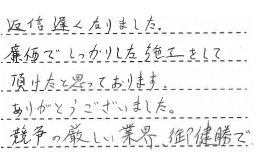 返信遅くなりました。
廉価でしっかりした施工をして
頂けたと思っております。
ありがとうございました。
競争の厳しい業界、御健勝で